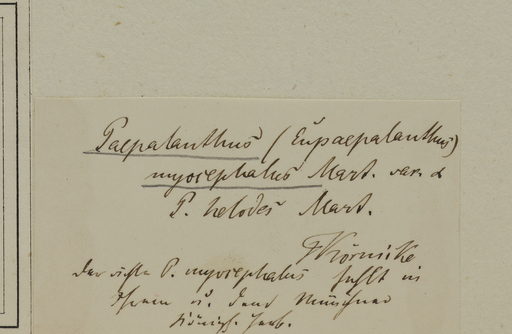 Paepalanthus (Eupaepalanthus)
myocephalus Mart. var. α
P. helodes Mart.
FKörnicke
Der ächte P. myocephalus fehlt in
Ihrem u. dem Münchner
Königl. Herb.